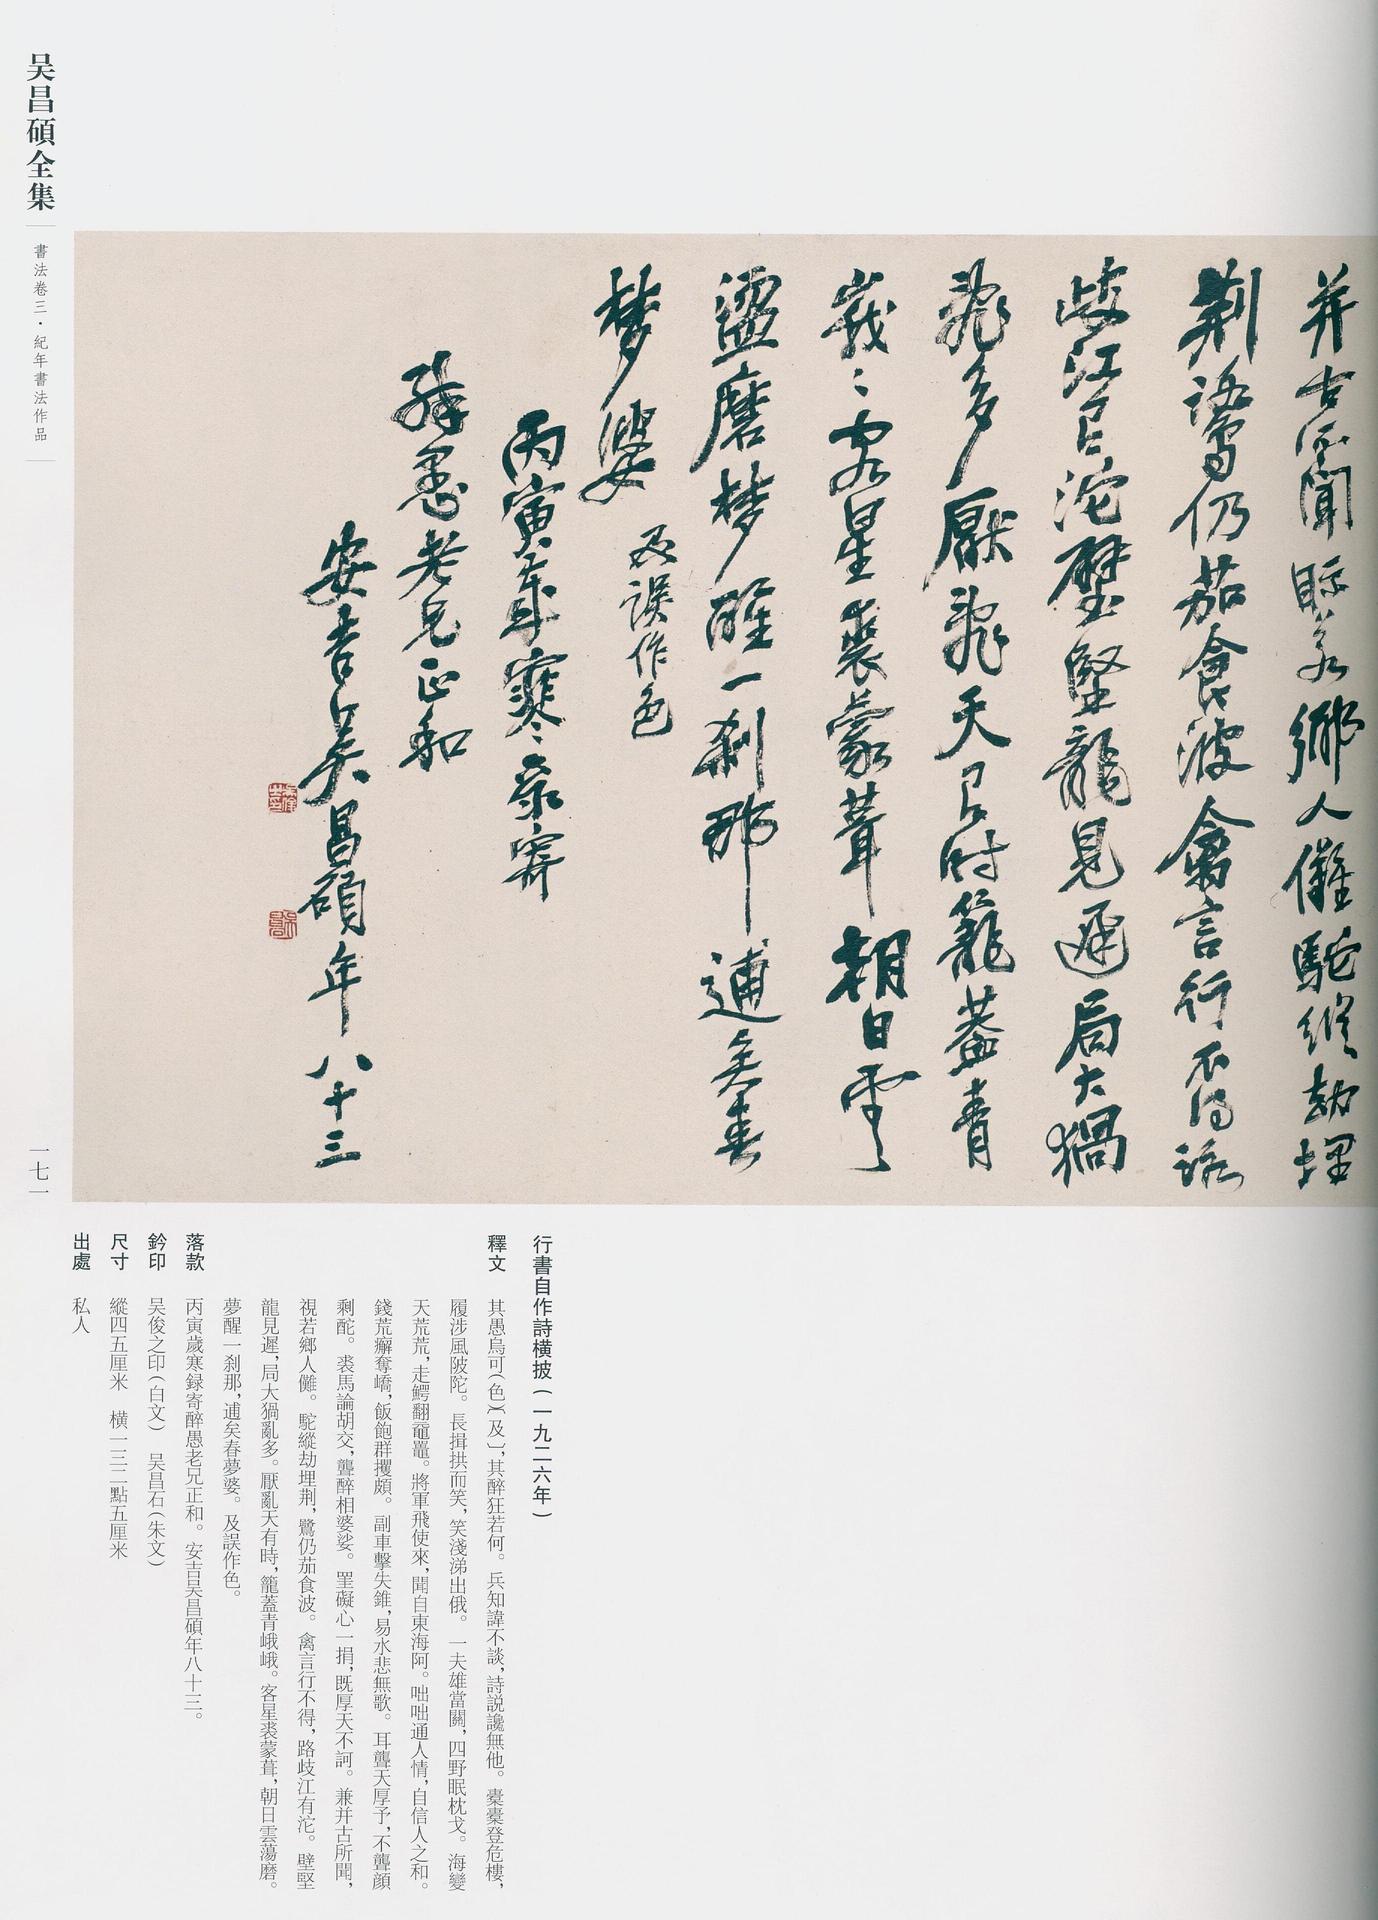 吴昌碩全集
書法卷三·紀年書法作品
一七一
并古所聞眎若鄉人儺駝縱劫埋
荆鷺仍茄食波禽言行不得路
歧江有沱壁堅龍見遲局大猧
亂多厭亂天有時籠蓋青
峩〻客星裘蒙茸朝日雲
盪磨梦醒一刹那逋矣春
梦婆
及誤作色
丙寅歲寒録寄
醉愚老兄正和
安吉吴昌碩年八十三
行書自作詩橫披(一九二六年)
釋文 其愚烏可(色)〔及〕,其醉狂若何。兵知諱不談,詩説讒無他。槖槖登危樓,
履涉風陂陀。長揖拱而笑,笑淺涕出俄。一夫雄當關,四野眠枕戈。海變
天荒荒,走鰐翻黿鼉。將軍飛使來,聞自東海阿。咄咄通人情,自信人之和。
錢荒癬奪嶠,飯飽群攫頗。副車擊失錐,易水悲無歌。耳聾天厚予,不聾顔
剩酡。裘馬論胡交,聾醉相婆娑。罣礙心一捐,既厚天不訶。兼并古所聞,
視若鄉人儺。駝縱劫埋荆,鷺仍茄食波。禽言行不得,路歧江有沱。壁堅
龍見遲,局大猧亂多。厭亂天有時,籠蓋青峨峨。客星裘蒙茸,朝日雲蕩磨。
夢醒一刹那,逋矣春夢婆。及誤作色。
落款 丙寅歲寒録寄醉愚老兄正和。安吉吴昌碩年八十三。
鈐印 吴俊之印(白文) 吴昌石(朱文)
尺寸 縱四五厘米 橫一三二點五厘米
出處 私人